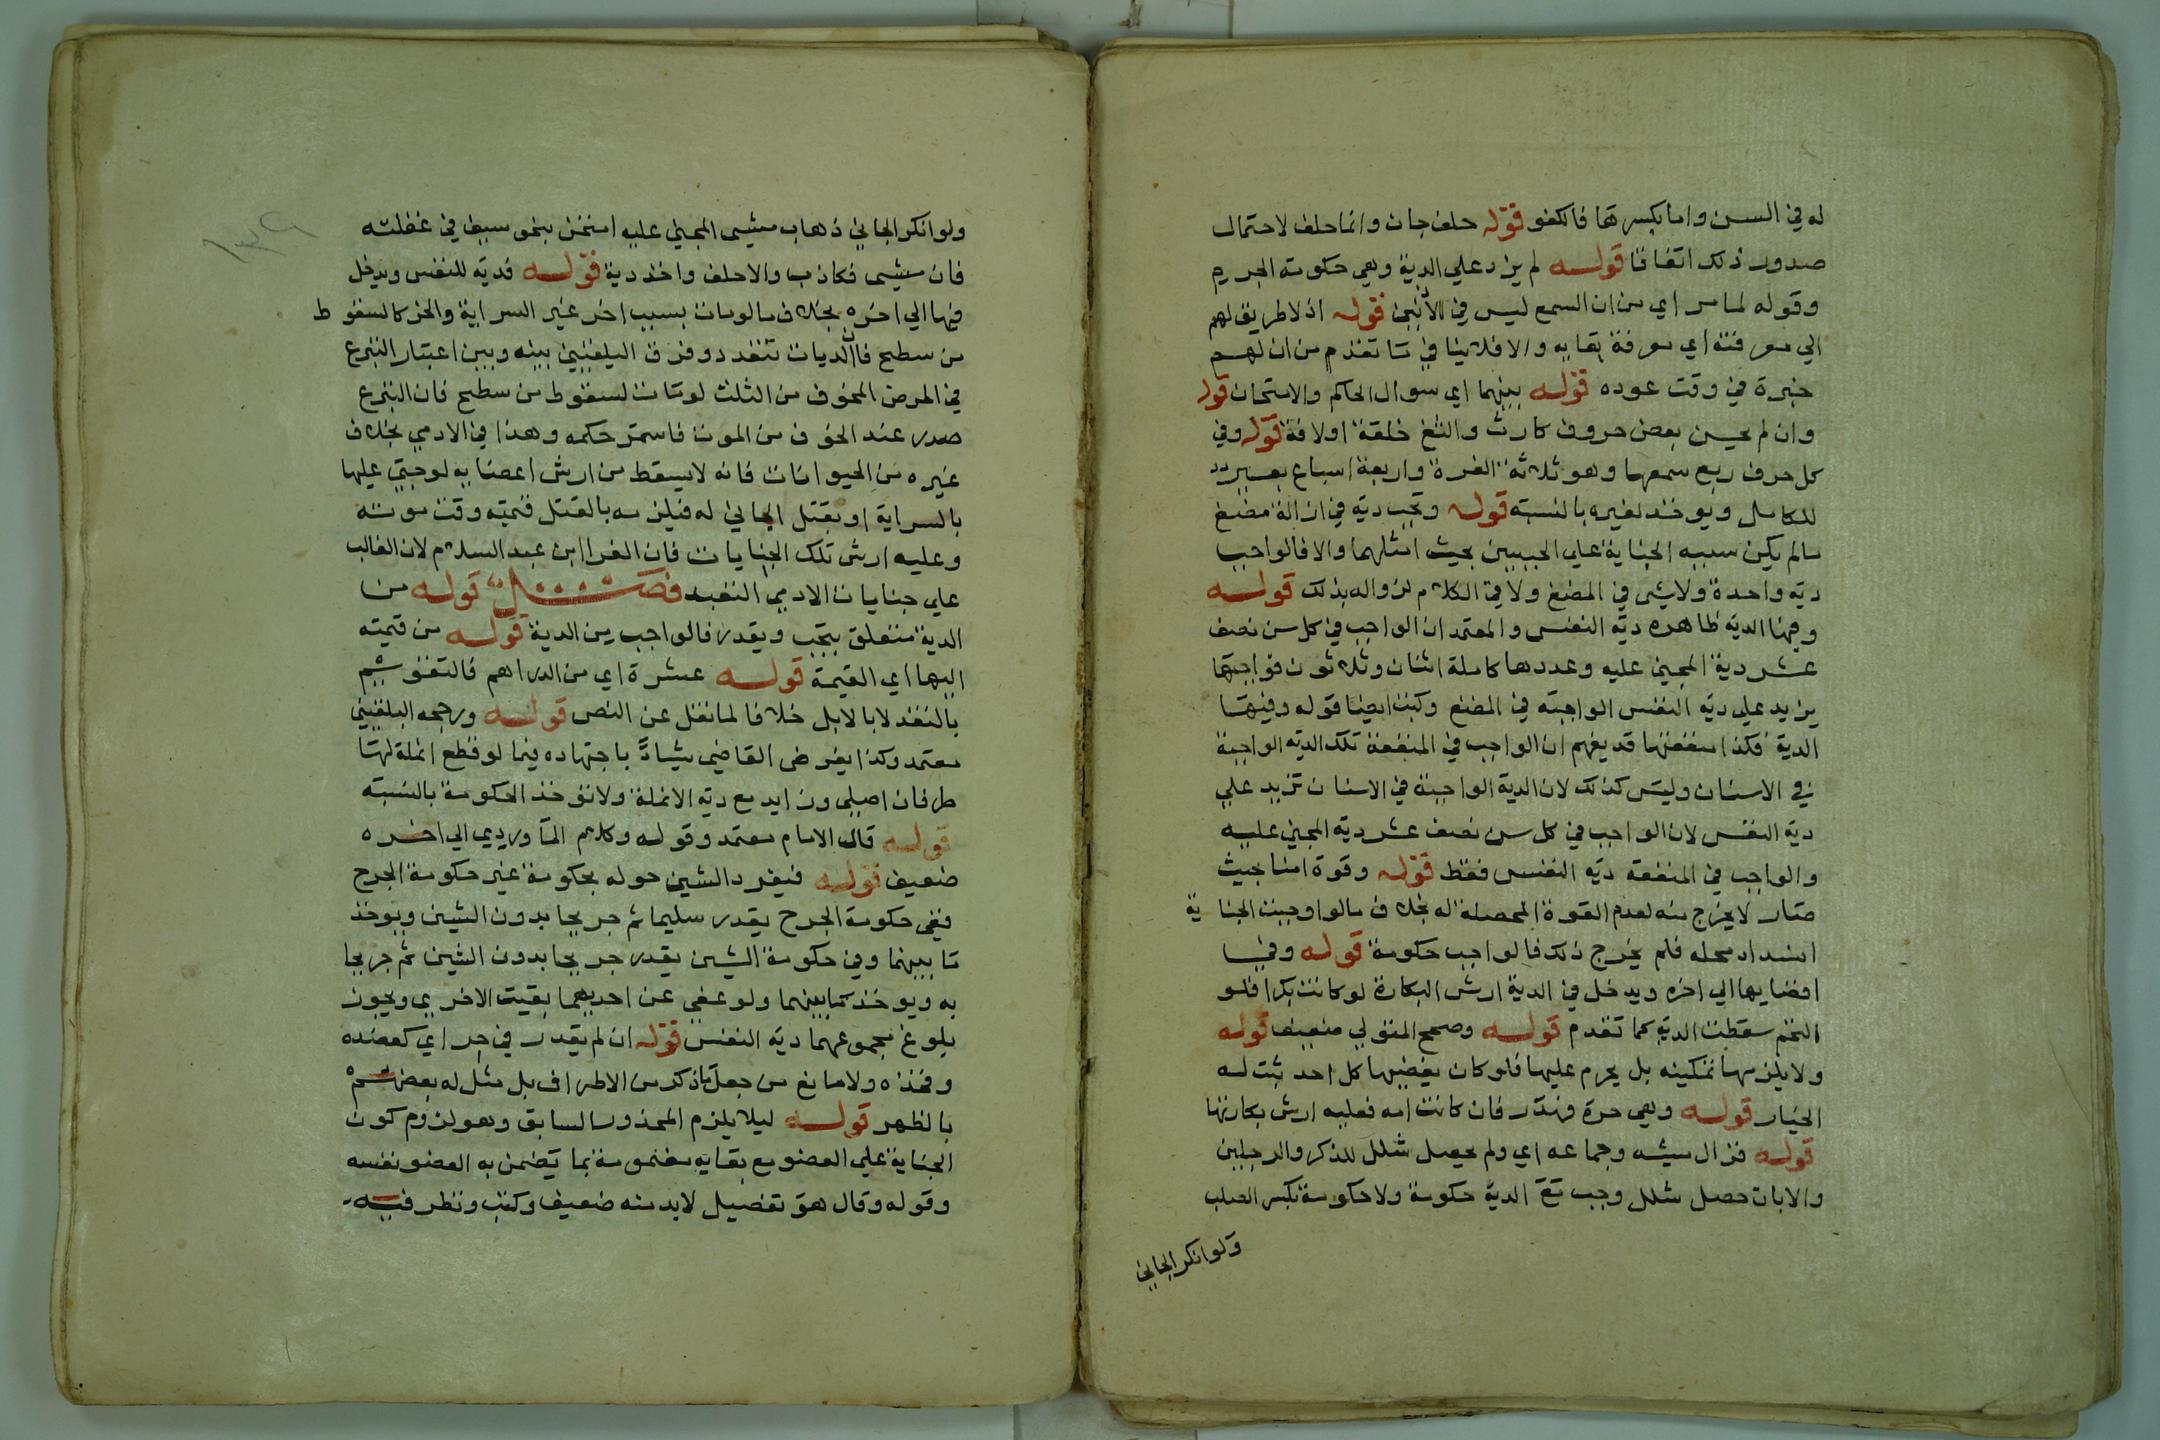 له في السن واما بكسرها فالكفو قوله حلف جان وانما حلف لاحتمال
صدور ذلك اتفاقا قوله لم يزد علي الدية وهي حكومة الجرم
وقوله لما مر اي من ان السمع ليس في الأذنين قوله اذ لا طريق لهم
الي معرفته اي معرفة بقايه والا فلا ينافي ما تقدم من ان لهم
خبرة في وقت عوده قوله بينهما اي سوال الحاكم والامتحان قوله
وان لم يحسن بعض حروف كارت والثغ خلقة اولافة قوله وفي
كل حرف ربع سمعها وهو ثلاثة الغرة واربعة اسباع بعير
للكامل ويوخذ لغيره بالنسبة قوله وتجب دية في ازالة مضغ
مالم يكن سببه الجناية علي بحيث والا فالواجب
دية واحدة ولاشي في المضغ ولا في الكلام لزواله بذلك قوله
وفيها الدية ظاهره دية النفس والمعتمد ان الواجب في كل سن نصف
عشر دية المجني عليه وعددها كاملة اثنان وثلاثون فواجبها
يزيد علي دية النفس الواجبة في المضغ وكتب ايضا قوله وفيها
الدية فكذا منفعتها قد يفهم ان الواجب في المنفعة تلك الدية الواجبة
في الاسنان وليس كذلك لان الدية الواجبة في الاسنان تزيد علي
دية النفس لان الواجب في كل سن نصف عشر دية المجني عليه
والواجب في المنفعة دية النفس فقط قوله وقوة امنا بحيث
صار لا يخرج منه لعدم القوة المحصلة له بخلاف مالو اوجبت الجناية
انسداد محله فلم يخرج ذلك فالواجب حكومة قوله وفي
افضايها الي اخره ويدخل في الدية ارش البكارة لو كانت بكرا فلو
التحم سقطت الدية كما تقدم قوله وصحح المتولي ضعيف قوله
ولا يلزمها تمكينه بل يحرم عليها فلو كان يفضيها كل احد ثبت له
الخيار قوله وهي حرة فهدر فان كانت امه فعليه ارش بكارتها
قوله فزال مشيه وجماعه اي ولم يحصل شلل للذكر والرجلين
والا بان حصل شلل وجب مع الدية حكومة ولا حكومة بكسر الصلب
ولو انكر الجاني
ولو انكر الجاني ذهاب مشي المجني عليه امتحن بنحو سيف في غفلته
فان مشي فكاذب والا حلف واخذ دية قوله فدية للنفس ويدخل
فيها الي اخره بخلاف مالومات بسبب اخر غير السراية والحز كالسقوط
من سطح فان الديات تتعدد وفرق البلقيني بينه وبين اعتبار التبرع
في المرض المخوف من الثلث لومات لسقوط من سطح فان التبرع
صدر عند الخوف من الموت فاستمر حكمه وهذا في الادمي بخلاف
غيره من الحيوانات فانه لا يسقط من ارش اعضايه لو جني عليها
بالسراية او بقتل الجاني له فيلزمه بالقتل قيمته وقت موته
وعليه ارش تلك الجنايات قاله الفزاري ابن عبد السلام لان الغالب
علي جنايات الادمي التعبد فصل قوله من
الدية متعلق بتجب ويقدر فالواجب من الدية قوله من قيمته
اليها اي القيمة قوله عشرة اي من الدراهم فالتقويم
بالنقد لا بالابل خلافا لما نقل عن النص قوله ورجحه البلقيني
معتمد وكذا يفرض القاضي شيا باجتهاده فيما لو قطع انملة لها
طرفان اصلي وزايد مع دية الانملة ولا توخذ الحكومة بالنسبة
قوله قال الامام معتمد وقوله وكلام الماوردي الي اخره
ضعيف قوله فيفرد الشين حوله بحكومة غير حكومة الجرح
ففي حكومة الجرح يقدر سليما ثم جريحا بدون الشين ويوخذ
ما بينهما وفي حكومة الشين يقدر جريحا بدون الشين ثم جريحا
به ويوخذ ما بينهما ولو عفي عن احديهما بقيت الاخري ويجوز
بلوغ مجموعهما دية النفس قوله ان لم يقدر في حر اي كعضده
وفخذه ولا مانع من جعل ما ذكر من الاطراف بل مثل له بعضهم
بالظهر قوله ليلا يلزم المحذور السابق وهو لزوم كون
الجناية علي العضو مع بقايه مضمومة بما يضمن به العضو نفسه
وقوله وقال هو تفصيل لابد منه ضعيف وكتب ونظر فيه